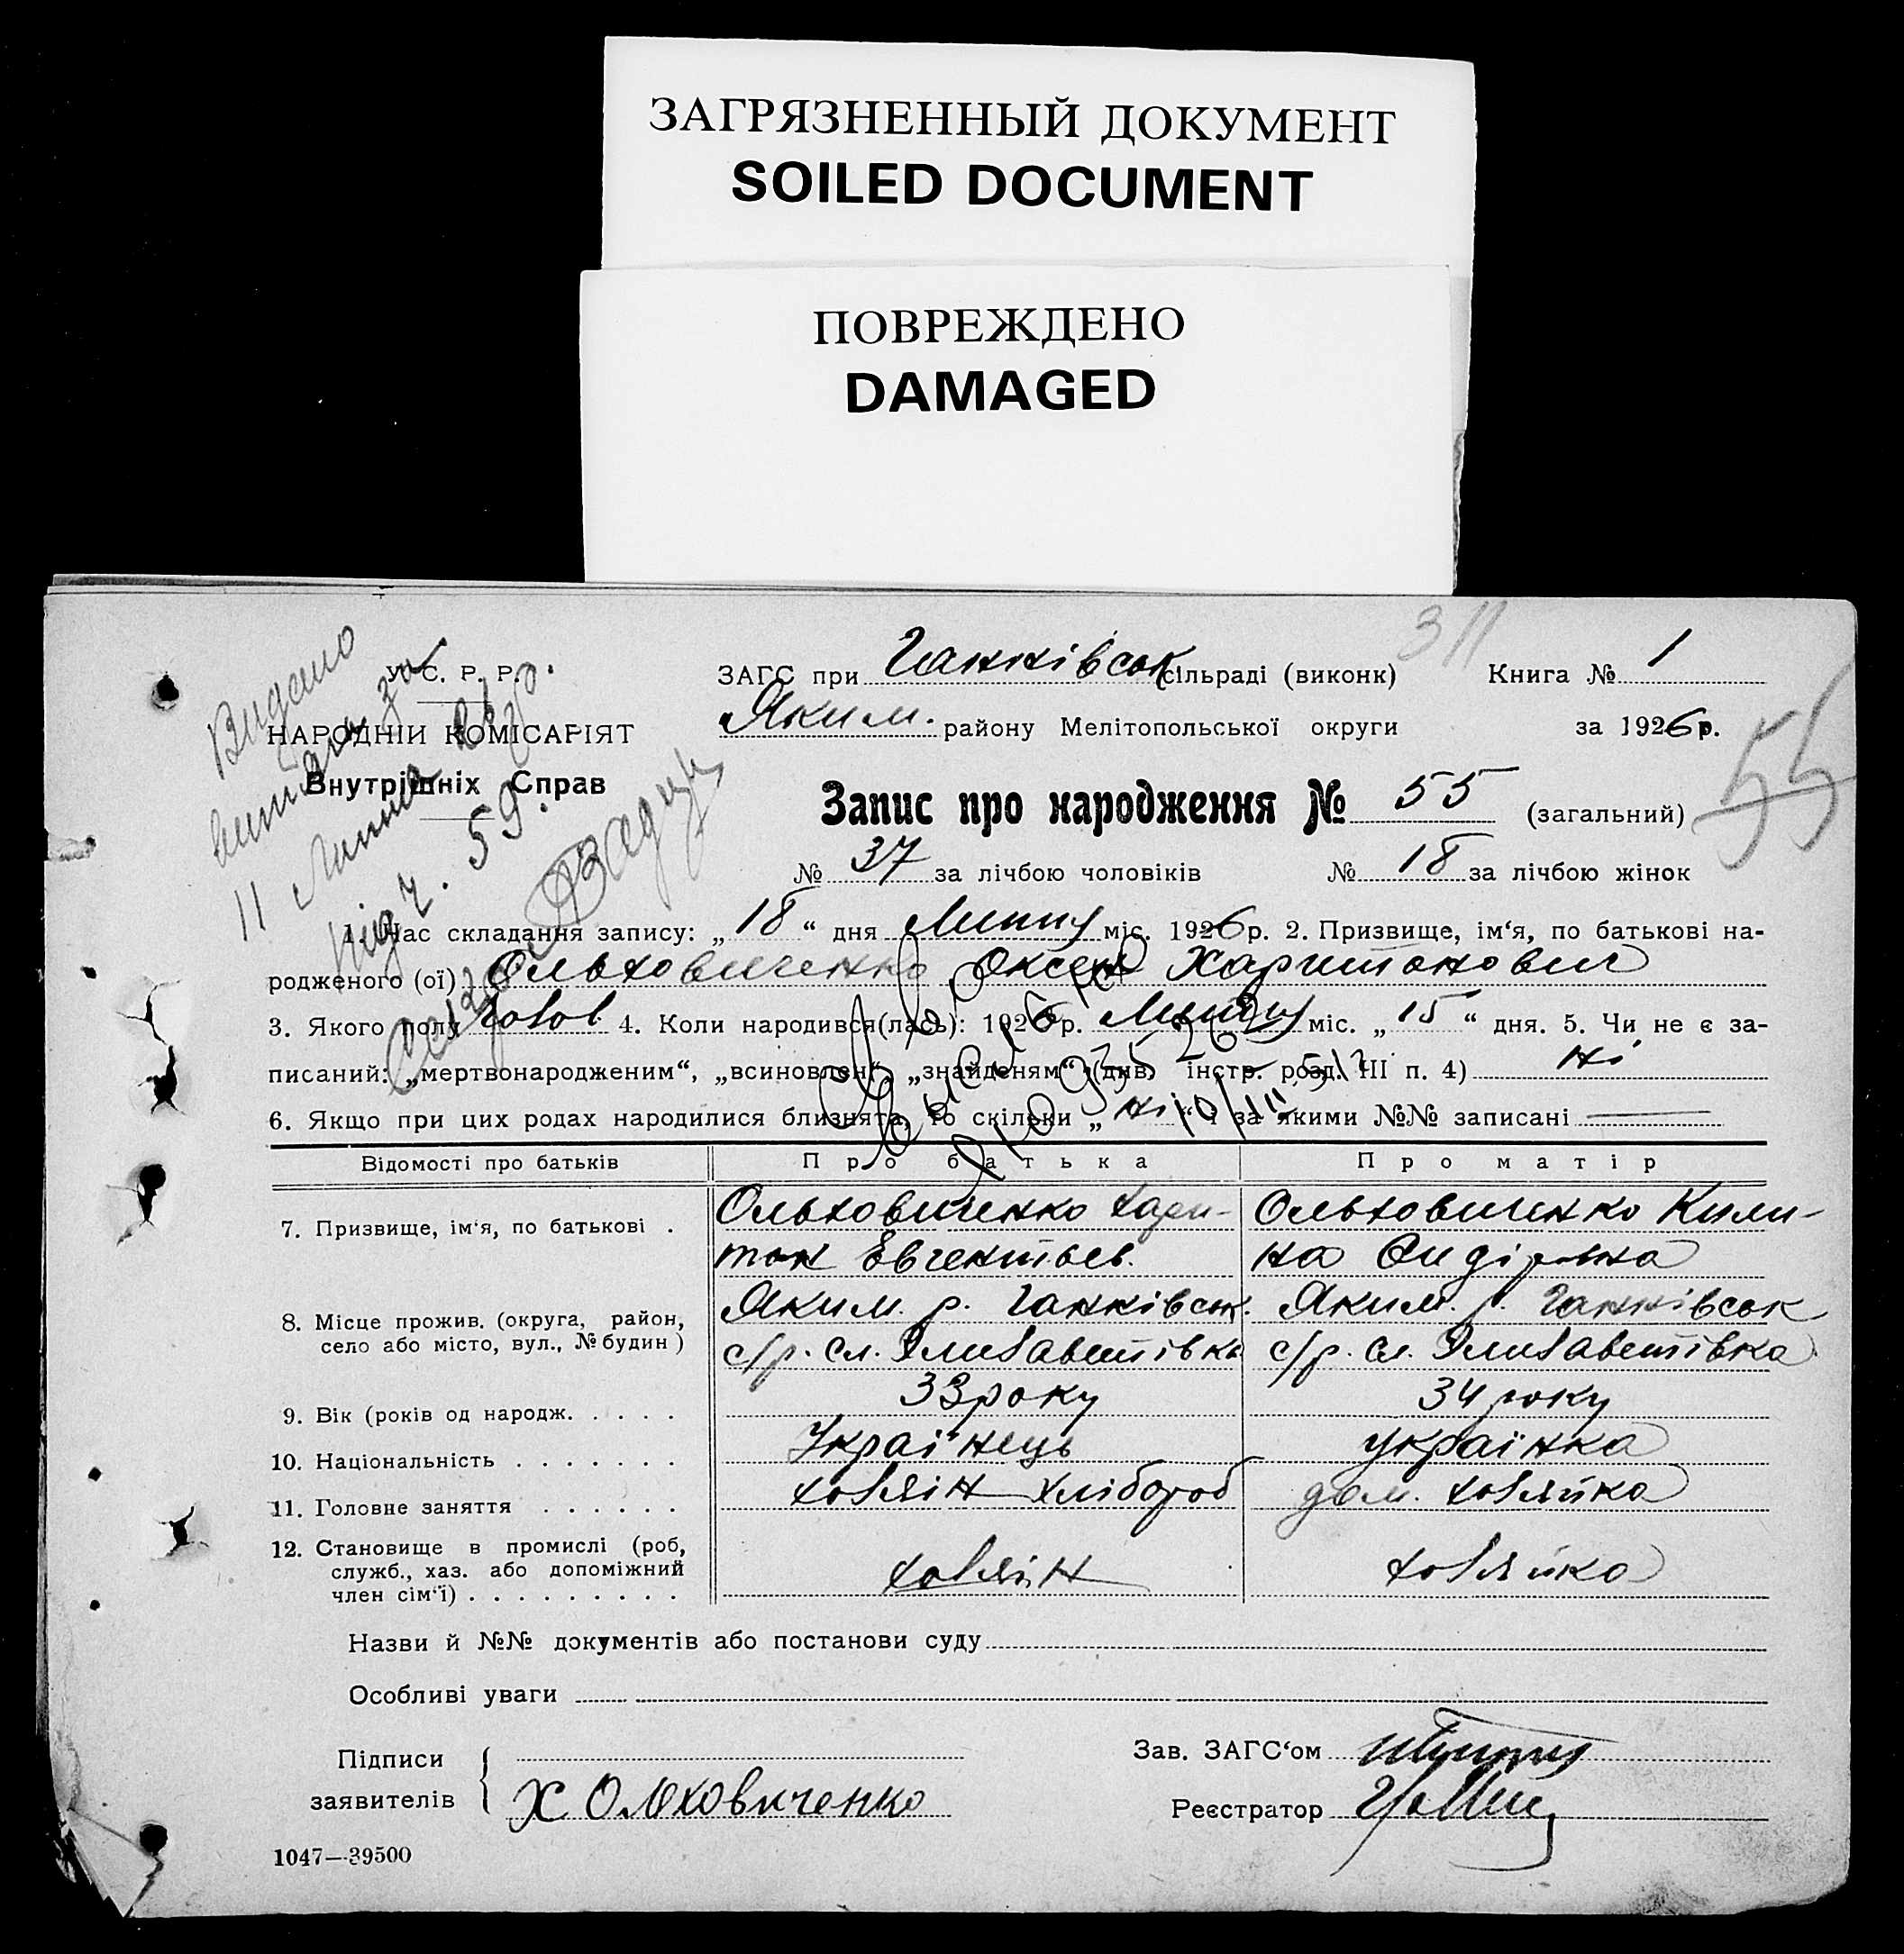 ЗАГРЯЗНЕННЫЙ ДОКУМЕНТ
SOILED DOCUMENT
ПОВРЕЖДЕНО
DAMAGED
311
У. С. Р. Р.
НАРОДНІЙ КОМІСАРІЯТ
Внутрішніх Справ
Видано
11 Липня
59.
ЗАГС при Ганнівськ сільраді (виконк) Книга № 1
Яким. району Мелітопольської округи за 1926 р.
Запис про народження № 55 (загальний)
55
№ 37 за лічбою чоловіків № 18 за лічбою жінок
1. Час складання запису: „18“ дня Липня міс. 1926 р. 2. Призвище, ім‘я, по батькові на-
родженого (ої) Ольховиченко Оксен Харитонович
3. Якого полу чолов 4. Коли народився(лась): 1926 р. Липня міс. „15“ дня. 5. Чи не є за-
писаний: „мертвонародженим“, „всиновлен“, „знайденям“ (див. інстр. розд. III п. 4) ні
6. Якщо при цих родах народилися близнята, то скільки „ні“ і за якими №№ записані
Відомості про батьків Про батька Про матір
7. Призвище, ім‘я, по батькові . Ольховиченко Хари- Ольховиченко Кили-
тон Евгентьев. на Сидірівна
8. Місце прожив. (округа, район, Яким. р. Ганнівськ. Яким. р. Ганнівськ
село або місто, вул., № будин ) с/р. сл. Єлизаветівка с/р. сл. Єлизаветівка
9. Вік (років од народж. . . . . 33 року 34 року
10. Національність . . . . . . . Українець українка
11. Головне заняття . . . . . . хозяін хлібороб дом. хозяйка
12. Становище в промислі (роб,
служб., хаз. або допоміжний хозяін хозяйка
член сім‘ї) . . . . . . . . .
Назви й №№ документів або постанови суду
Особливі уваги
Підписи Зав. ЗАГС‘ом
заявителів Х Олховиченко Реєстратор
1047—39500